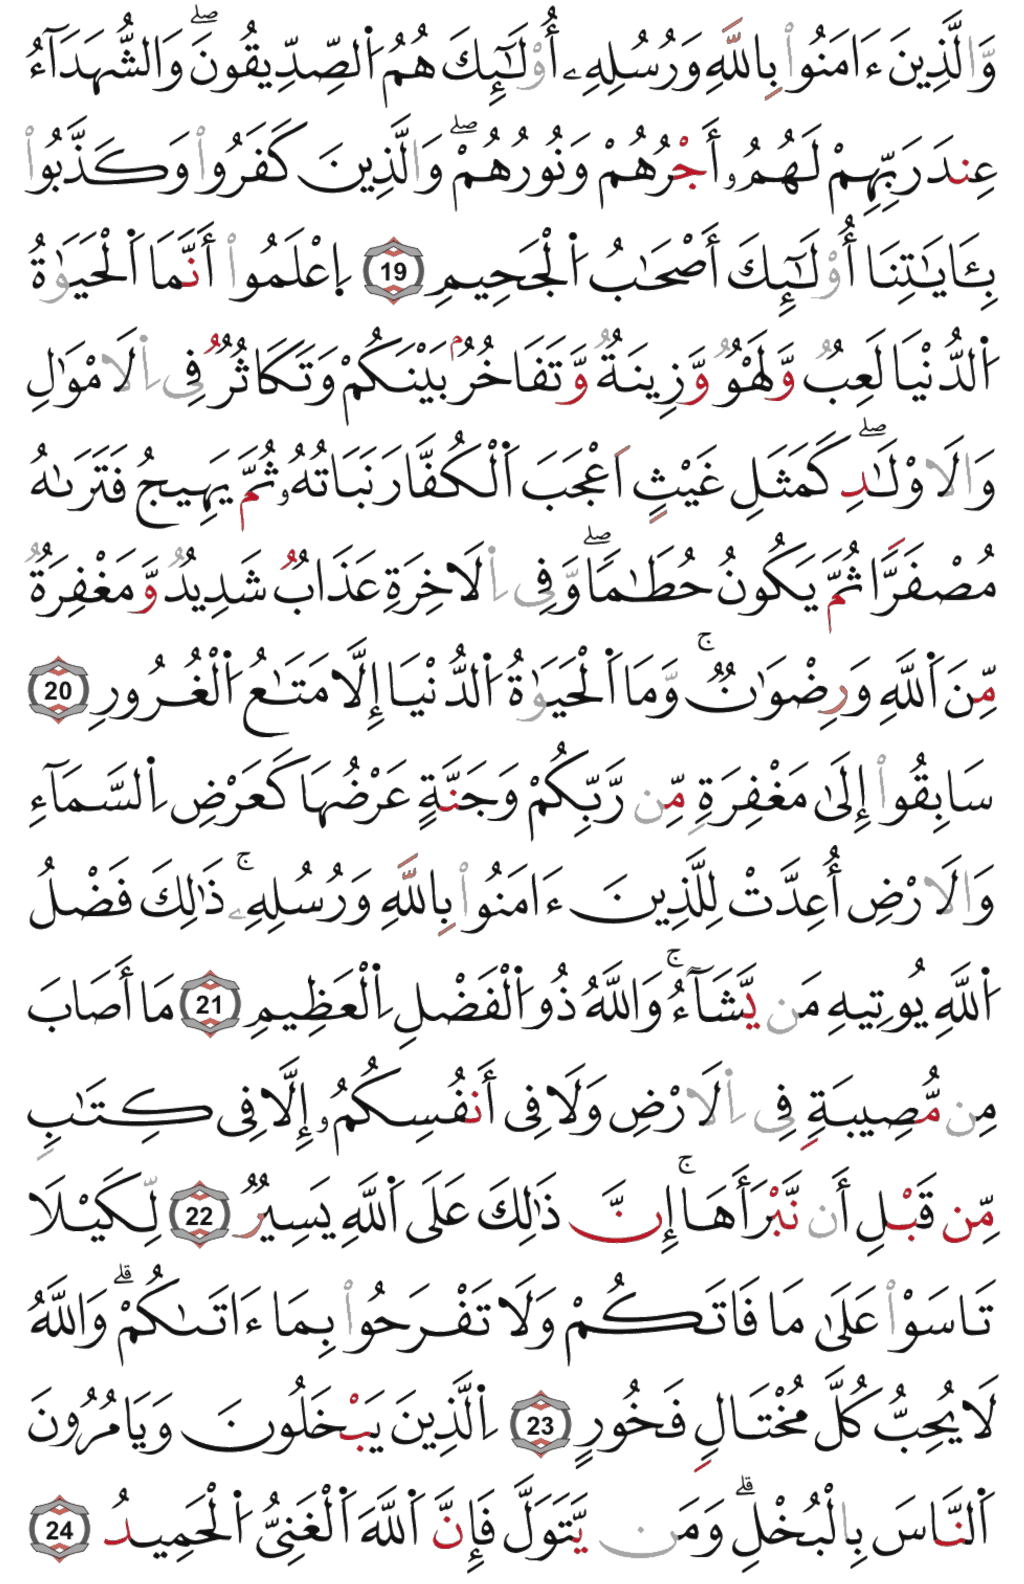 وَالَّذِينَ ءَامَنُوا۟ بِاللَّهِ وَرُسُلِهِۦ أُوْلَـٰٓئِكَ هُمُ اُ۬لصِّدِّيقُونَۖ وَالشُّهَدَآءُ
عِندَ رَبِّهِمْ لَهُمُۥٓ أَجْرُهُمْ وَنُورُهُمْۖ وَالَّذِينَ كَفَرُوا۟ وَكَذَّبُوا۟
بِـَٔايَـٰتِنَا أُوْلَـٰٓئِكَ أَصْحَـٰبُ اُ۬لْجَحِيمِ 19 اِ۪عْلَمُوا۟ أَنَّمَا اَ۬لْحَيَوٰةُ
اُ۬لدُّنْيَا لَعِبٌ وَّلَهْوٌ وَّزِينَةٌ وَّتَفَاخُرُۢ بَيْنَكُمْ وَتَكَاثُرٌ فِي اِ۬لَامْوَٰلِ
وَالَاوْلَـٰدِۖ كَمَثَلِ غَيْثٍ اَعْجَبَ اَ۬لْكُفَّارَ نَبَاتُهُۥ ثُمَّ يَهِيجُ فَتَرَىٰهُ
مُصْفَرًّا ثُمَّ يَكُونُ حُطَـٰمًاۖ وَّفِي اِ۬لَاخِرَةِ عَذَابٌ شَدِيدٌ وَّمَغْفِرَةٌ
مِّنَ اَ۬للَّهِ وَرِضْوَٰنٌۚ وَّمَا اَ۬لْحَيَوٰةُ اُ۬لدُّنْيَا إِلَّا مَتَـٰعُ اُ۬لْغُرُورِ 20
سَابِقُوا۟ إِلَىٰ مَغْفِرَةٍ مِّن رَّبِّكُمْ وَجَنَّةٍ عَرْضُهَا كَعَرْضِ اِ۬لسَّمَآءِ
وَالَارْضِ أُعِدَّتْ لِلَّذِينَ ءَامَنُوا۟ بِاللَّهِ وَرُسُلِهِۦۚ ذَٰلِكَ فَضْلُ
اُ۬للَّهِ يُوتِيهِ مَن يَّشَآءُۚ وَاللَّهُ ذُو اُ۬لْفَضْلِ اِ۬لْعَظِيمِ 21 مَا أَصَابَ
مِن مُّصِيبَةٍ فِي اِ۬لَارْضِ وَلَا فِي أَنفُسِكُمُۥٓ إِلَّا فِي كِتَـٰبٍ
مِّن قَبْلِ أَن نَّبْرَأَهَاۚ إِنَّ ذَٰلِكَ عَلَى اَ۬للَّهِ يَسِيرٌ 22 لِّكَيْلَا
تَاسَوْا۟ عَلَىٰ مَا فَاتَكُمْ وَلَا تَفْرَحُوا۟ بِمَا ءَاتَىٰكُمْۗ وَاللَّهُ
لَا يُحِبُّ كُلَّ مُخْتَالٍ فَخُورٍ 23 اِ۬لَّذِينَ يَبْخَلُونَ وَيَامُرُونَ
اَ۬لنَّاسَ بِالْبُخْلِۗ وَمَن يَّتَوَلَّ فَإِنَّ اَ۬للَّهَ اَ۬لْغَنِيُّ اُ۬لْحَمِيدُ 24